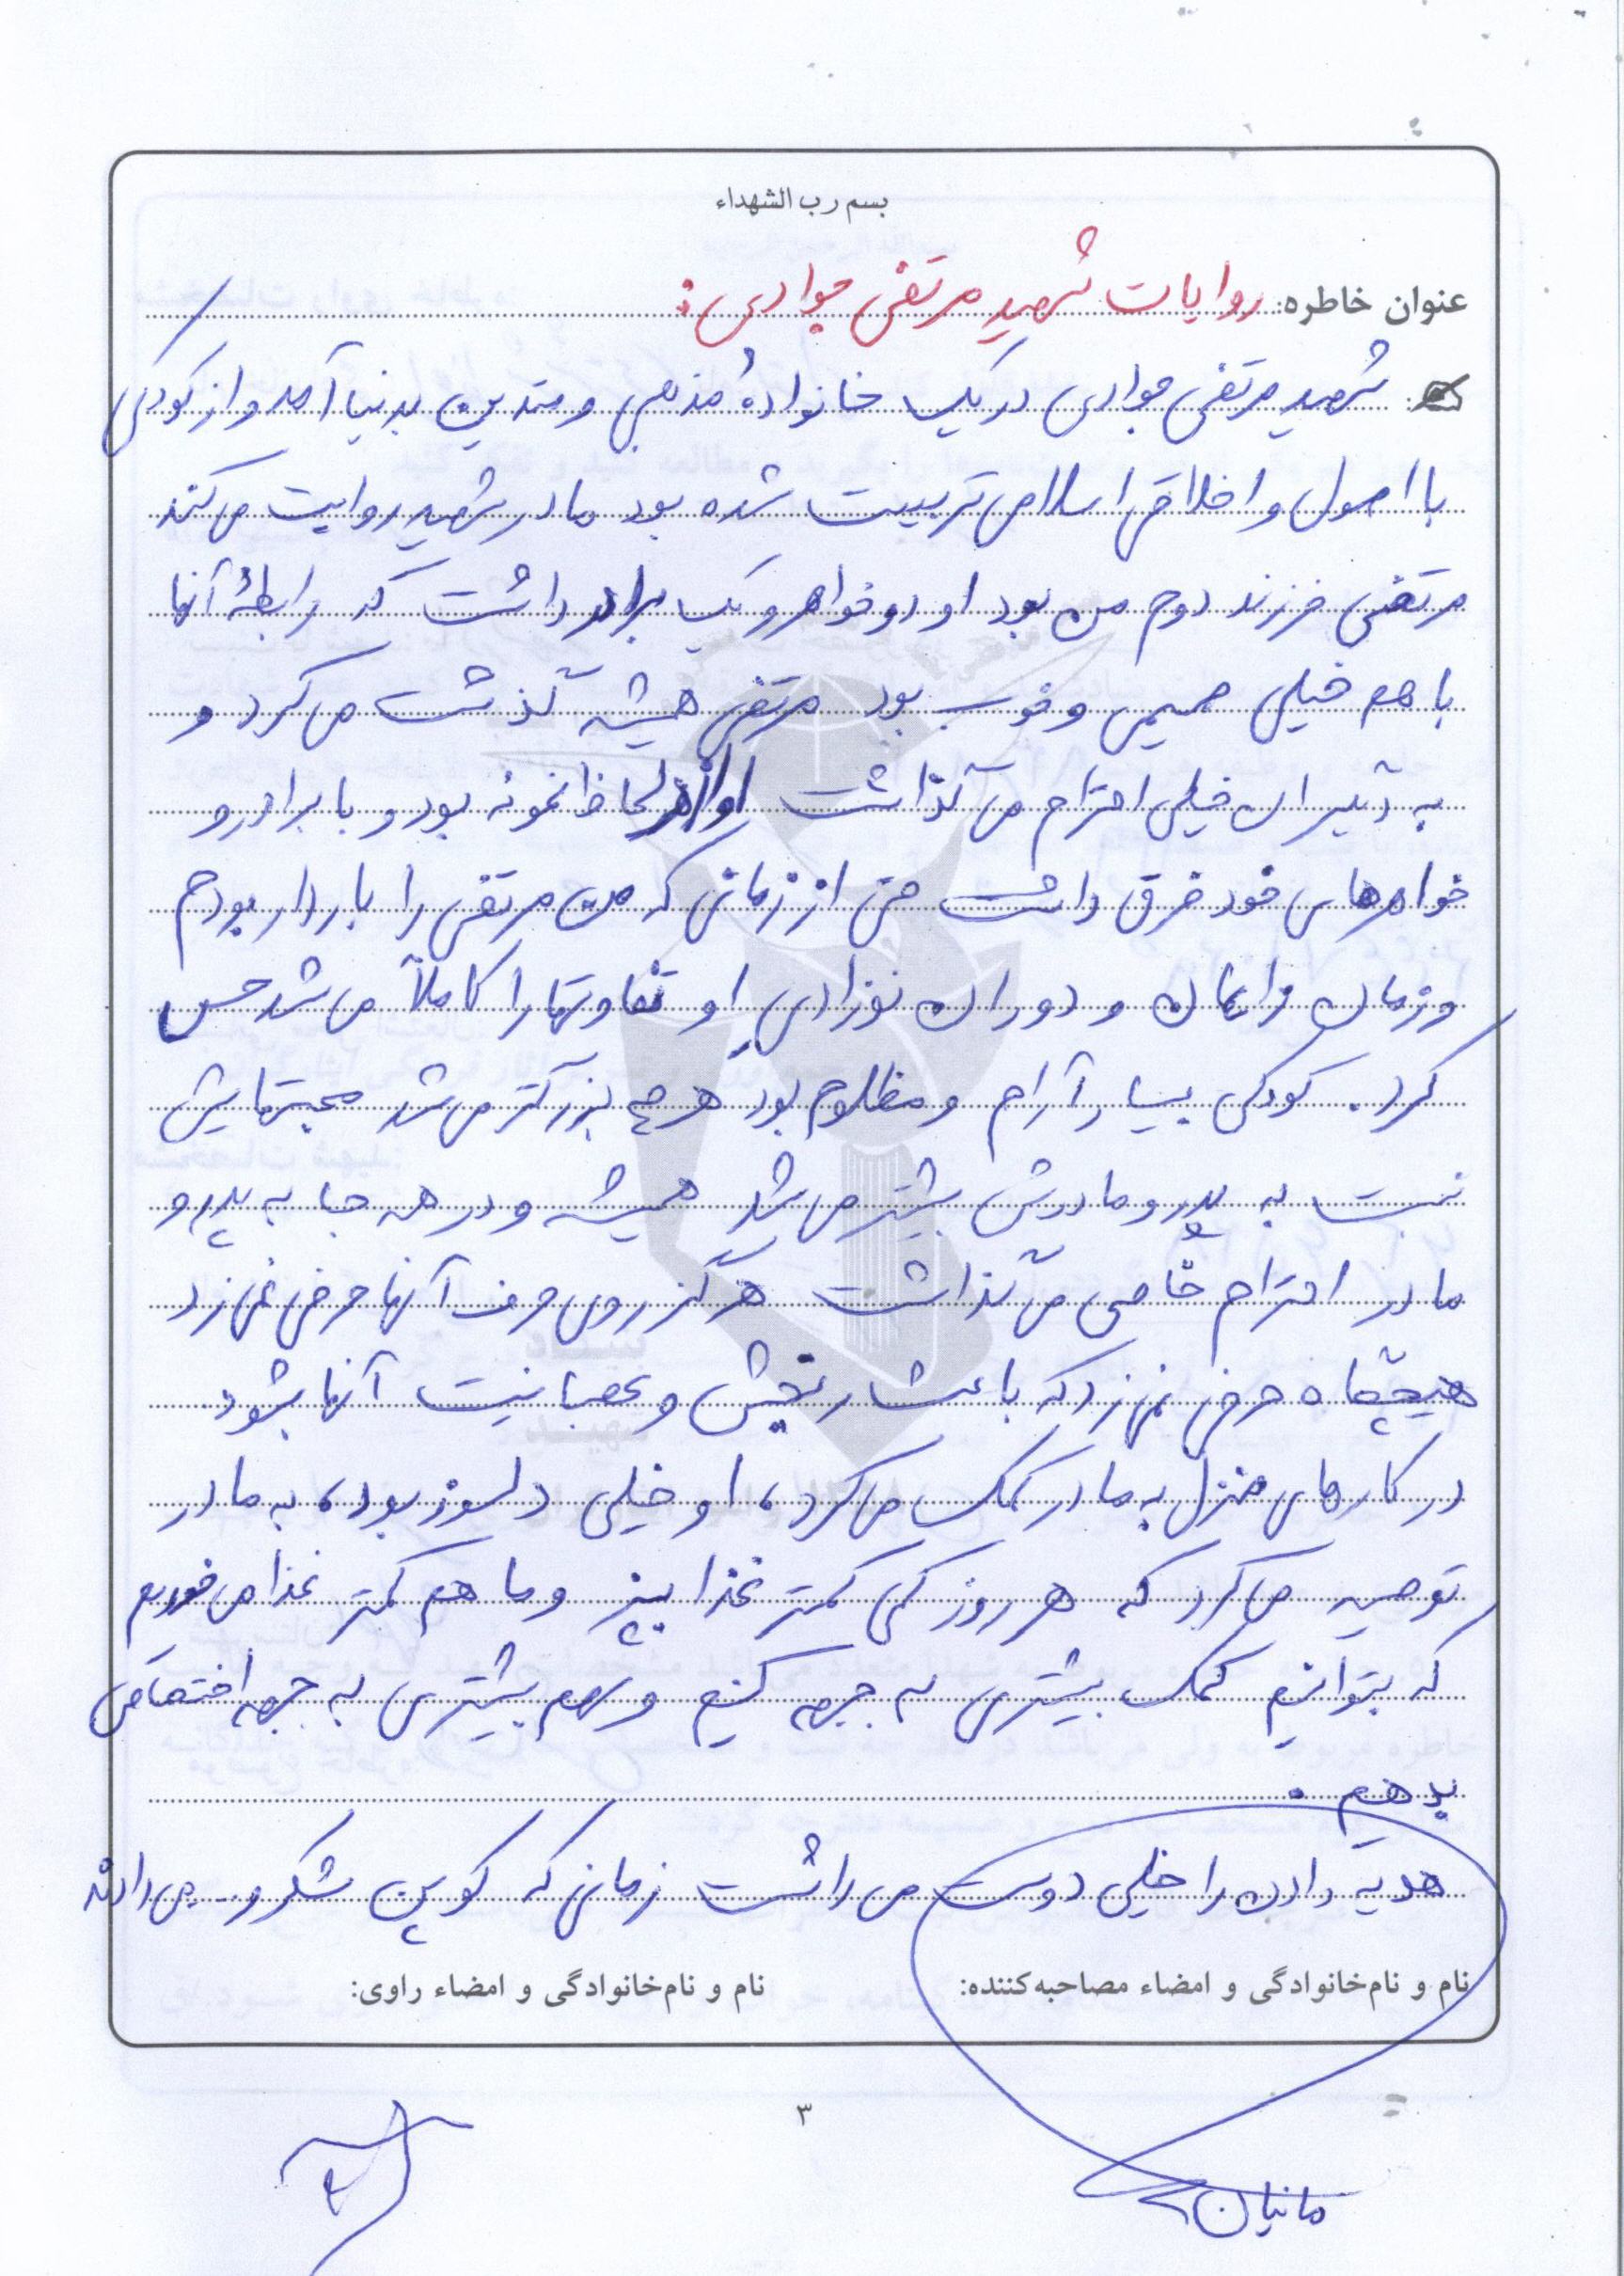 بسم رب الشهداء
عنوان خاطره: روایات شهید مرتضی جوادی:
شهید مرتضی جوادی در یک خانوادهٔ مذهبی و متدین بدنیا آمد و از کودکی
با اصول و اخلاق اسلامی تربیت شده بود مادر شهید روایت می کند
مرتضی فرزند دوم من بود او دو خواهر و یک برادر داشت که رابطهٔ آنها
با هم خیلی صمیمی و خوب بود مرتضی همیشه گذشت می کرد و
به دیگران خیلی احترام می گذاشت او از هر لحاظ نمونه بود و با برادر و
خواهرهای خود فرق داشت حتی از زمانی که من مرتضی را باردار بودم
و زمان زایمان و دوران نوزادی او تفاوتها را کاملاً می شد حس
کرد. کودکی بسیار آرام و مظلوم بود هر چه بزرگتر می شد محبتهایش
نسبت به پدر و مادرش بیشتر می شد همیشه و در همه جا به پدر و
مادر احترام خاصی می گذاشت هرگز روی حرف آنها حرفی نمی زد
هیچگاه حرفی نمی زد که باعث رنجش و عصبانیت آنها بشود.
در کارهای منزل به مادر کمک می کرد، او خیلی دلسوز بود، به مادر
توصیه می کرد که هر روز کمی کمتر غذا بپز و ما هم کمتر غذا می خوریم
که بتوانیم کمک بیشتری به جبهه کنیم و سهم بیشتری به جبهه اختصاص
بدهیم.
هدیه دادن را خیلی دوست می داشت زمانی که کوپن شکر و... می دادند
نام و نام‌خانوادگی و امضاء مصاحبه‌کننده:
نام و نام‌خانوادگی و امضاء راوی:
۳
مانیان